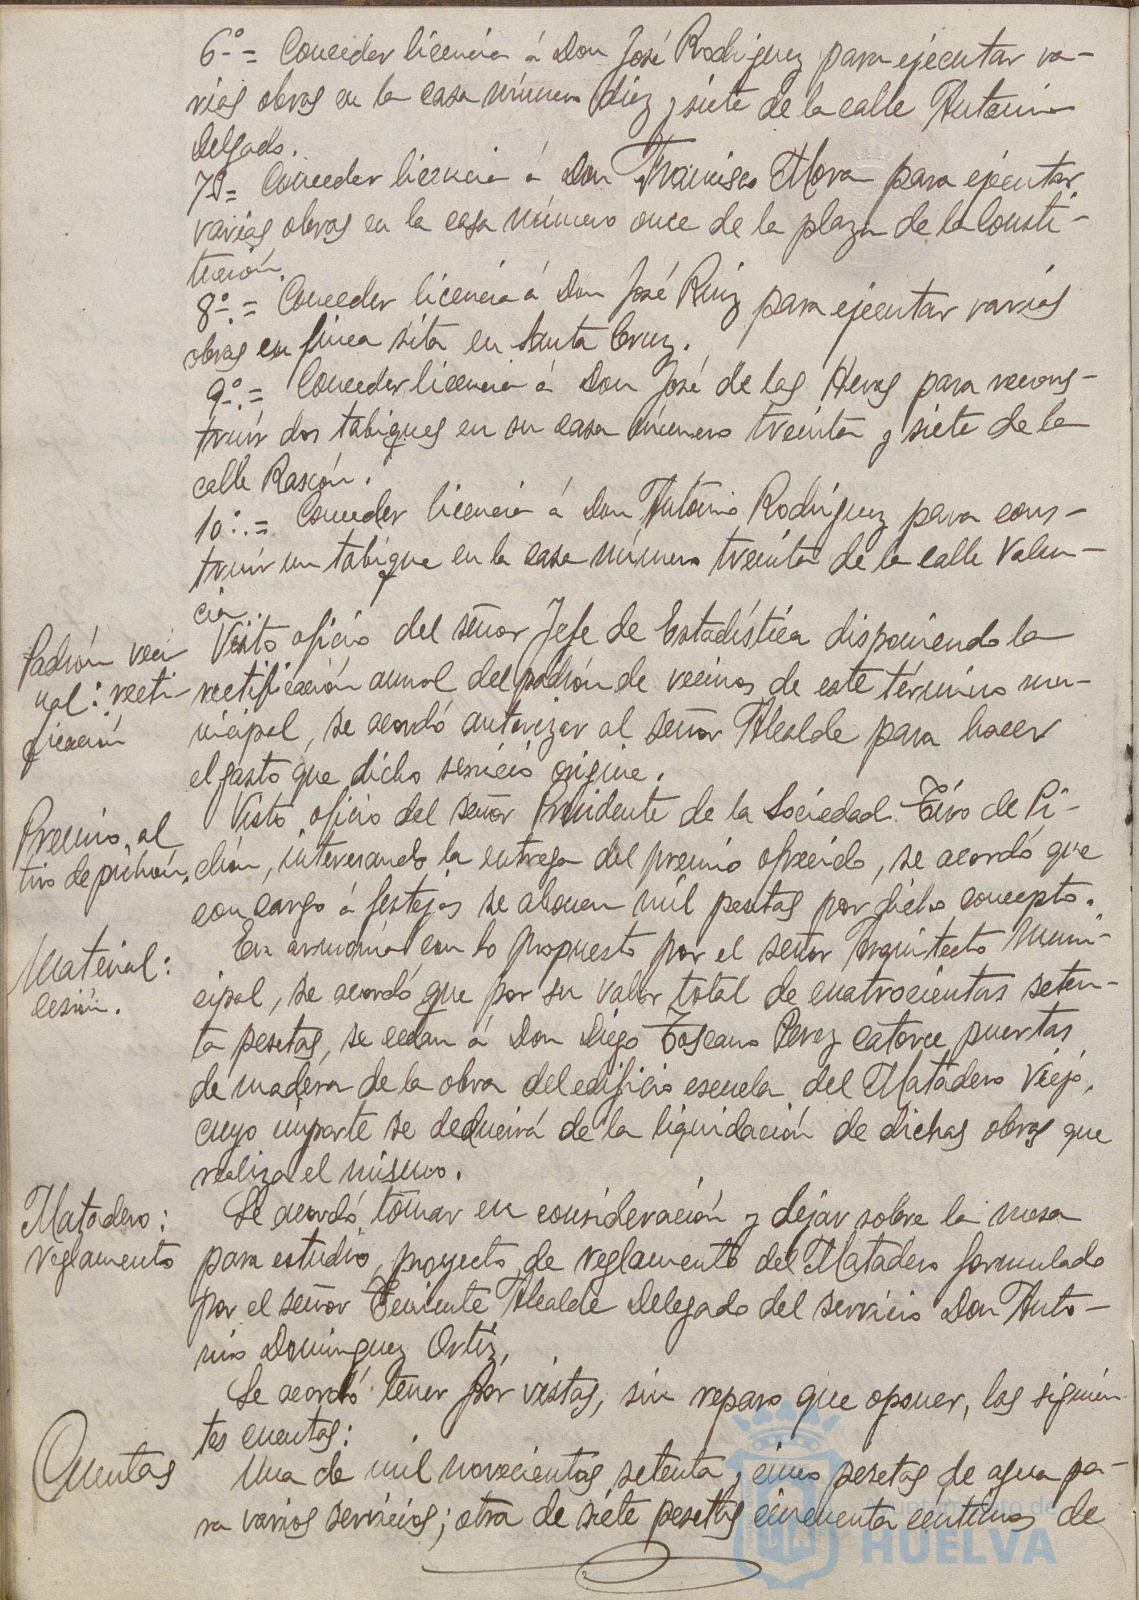 6º.= Conceder licencia á Don José Rodriguez para ejecutar va-
rias obras en la casa número diez y siete de la calle Antonio
Delgado.
7º= Conceder licencia á Don Francisco Mora para ejecutar
varias obras en la casa número once de la plaza de la Consti-
tución.
8º.= Conceder licencia á Don José Ruiz para ejecutar varias
obras en finca sita en Santa Cruz.
9º.= Conceder licencia á Don José de las Heras para recons-
truir dos tabiques en su casa número treinta y siete de la
calle Rascón.
10º.= Conceder licencia á Don Antonio Rodriguez para cons-
truir un tabique en la casa número treinta de la calle Valen-
cia.
Padrón veci
nal: recti-
ficación
Visto oficio del señor Jefe de Estadística disponiendo la
rectificación anual del padrón de vecinos de este término mu-
nicipal, se acordó autorizar al señor Alcalde para hacer
el gasto que dicho servicio origine.
Premio al
tiro de pichón.
Visto oficio del señor Presidente de la Sociedad Tiro de Pi-
chón, interesando la entrega del premio ofrecido, se acordó que
con cargo á festejos se abonen mil pesetas por dicho concepto.
Material:
cesión.
En armonía con lo propuesto por el señor Arquitecto Muni-
cipal, se acordó que por su valor total de cuatrocientas seten-
ta pesetas, se cedan á Don Diego Toscano Perez catorce puertas
de madera de la obra del edificio escuela del Matadero Viejo,
cuyo importe se deducirá de la liquidación de dichas obras que
realiza el mismo.
Matadero:
reglamento
Se acordó tomar en consideración y dejar sobre la mesa
para estudio, proyecto de reglamento del Matadero formulado
por el señor Teniente Alcalde Delegado del servicio Don Anto-
nio Dominguez Ortiz.
Se acordó tener por vistas, sin reparo que oponer, las siguien-
tes cuentas:
Cuentas
Una de mil novecientas setenta y cinco pesetas de agua pa-
ra varios servicios; otra de siete pesetas cincuenta centimos de
Ayuntamiento de
HUELVA